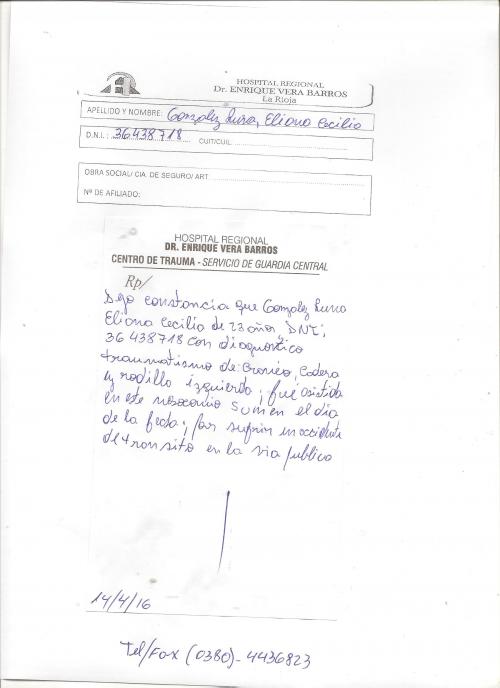 HOSPITAL REGIONAL
Dr. ENRIQUE VERA BARROS
La Rioja
APELLIDO Y NOMBRE: Gonzalez Luna, Eliana Cecilia
D.N.I.: 36438718 CUIT/CUIL:
OBRA SOCIAL/ CIA. DE SEGURO/ ART
Nº DE AFILIADO:
HOSPITAL REGIONAL
DR. ENRIQUE VERA BARROS
CENTRO DE TRAUMA - SERVICIO DE GUARDIA CENTRAL
Rp/
Dejo constancia que Gonzalez Luna
Eliana Cecilia de 23 años, DNI;
36438718 con diagnostico
traumatismo de Craneo, Cadera
y rodilla izquierda; fué asistida
en este nosocomio en el día
de la fecha; por sufrir un accidente
de transito en la via publica
14/4/16
Tel/Fax (0380)-4436823